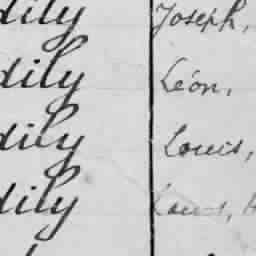 dily Joseph,
dily Léon,
dily Louis,
dily